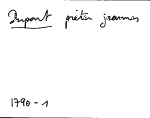 Dupont pieter joannes
1790-1